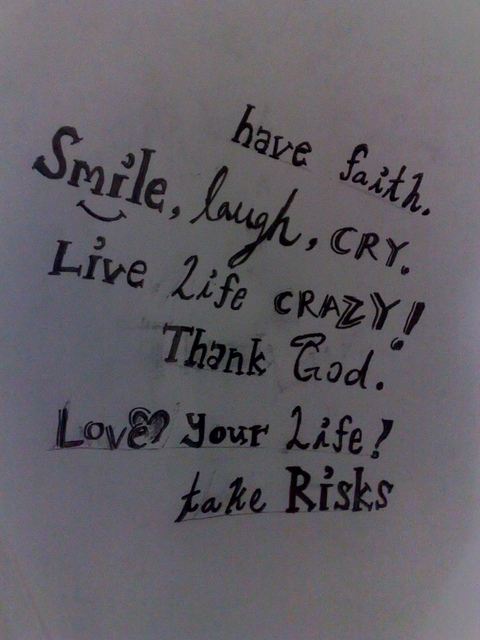 have faith.
Smile, laugh, CRY.
Live Life CRAZY!
Thank God.
Love Your Life!
take Risks